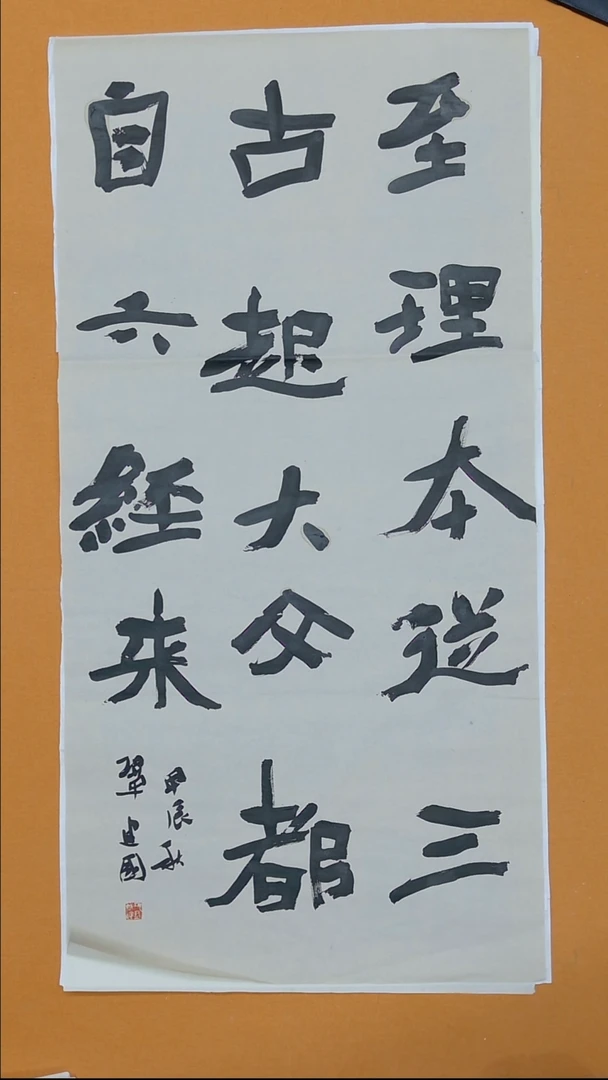 至理本從三
古起大文都
自六經来
甲辰秋
建國